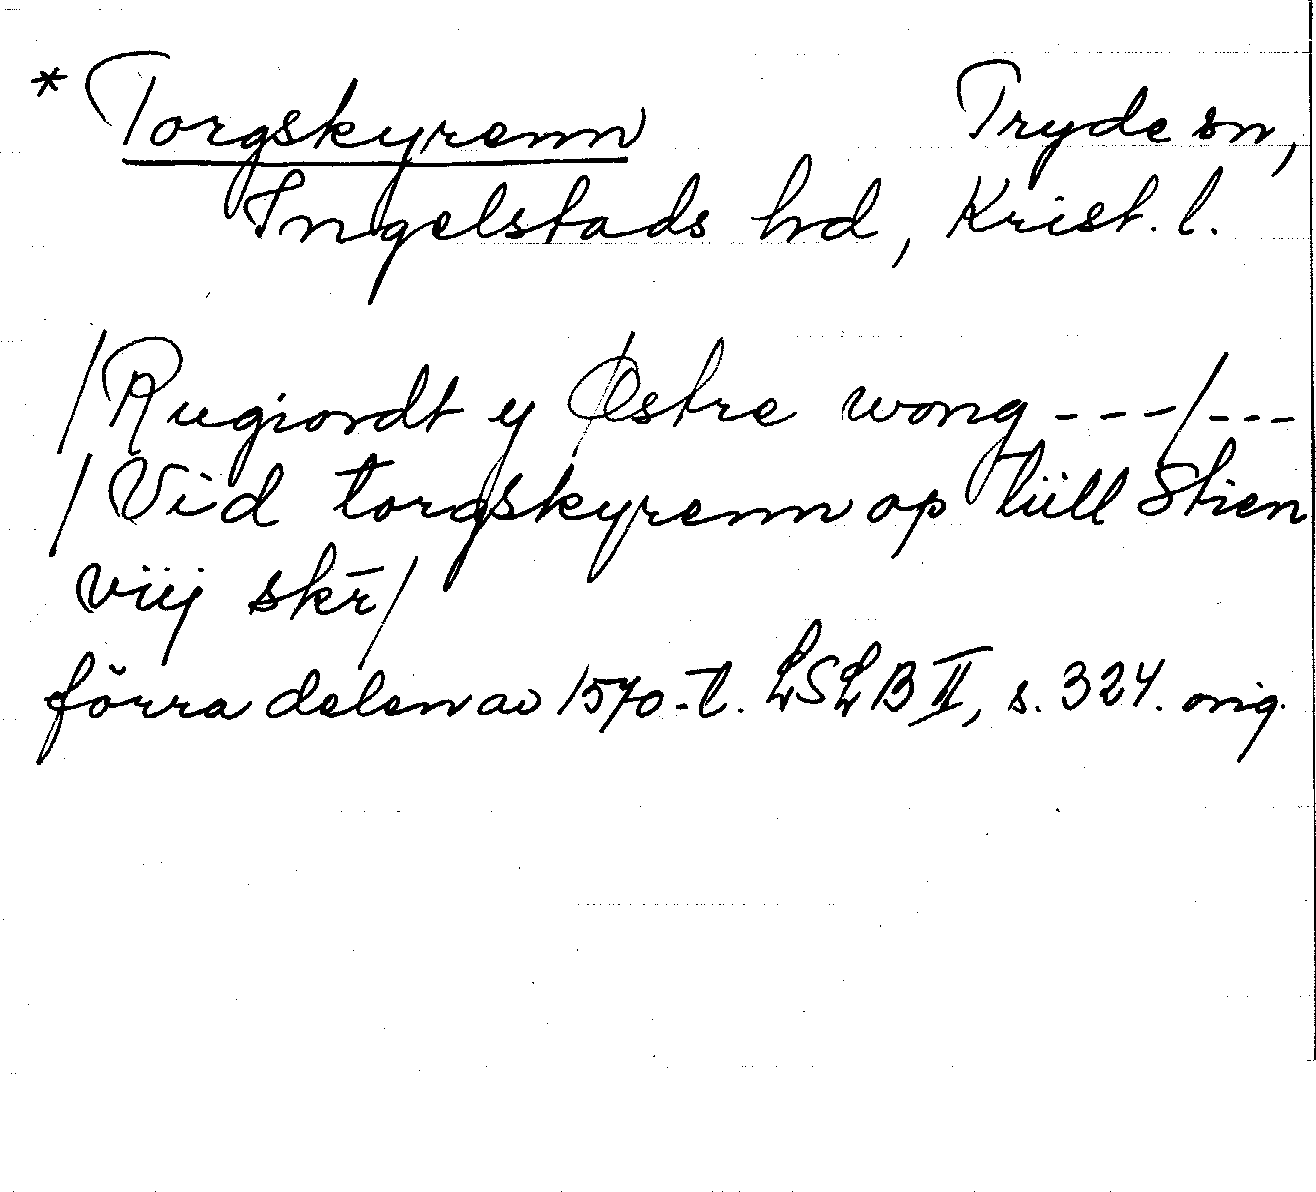 * Torgskyrenn Tryde sn,
Ingelstads hd, Krist. l.
/Rugiordt y Østre wong ---/---
/Vid torgskyrenn op tüll Stien
viij skr̄/
förra delen av 1570-t. LSLB II, s. 324. orig.